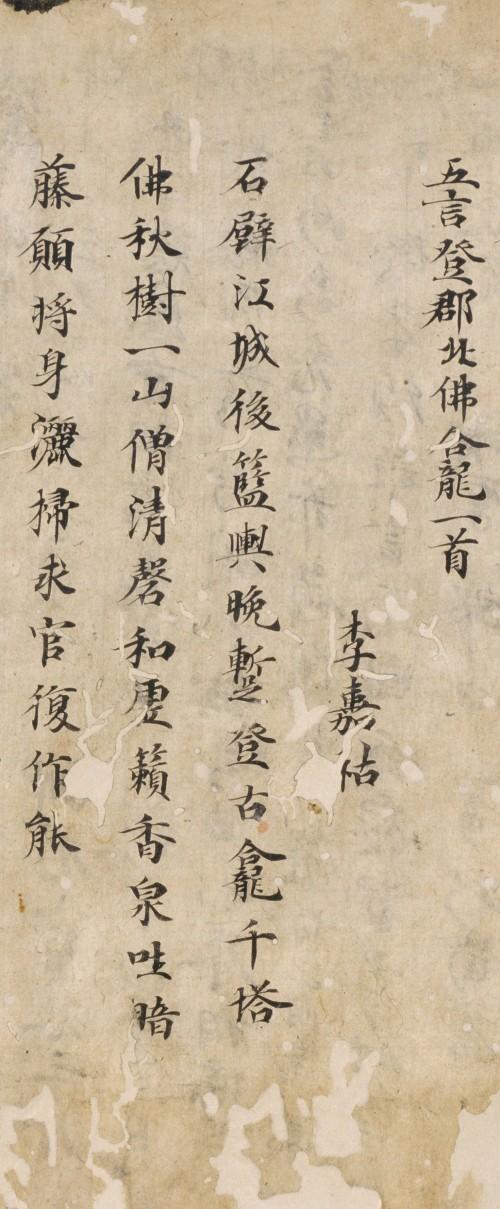 五言登郡北佛龕一首
李嘉祐
石壁江城後籃輿晚蹔登古龕千塔
佛秋樹一山僧清磬和虛籟香泉吐暗
藤願將身灑掃求官復作能